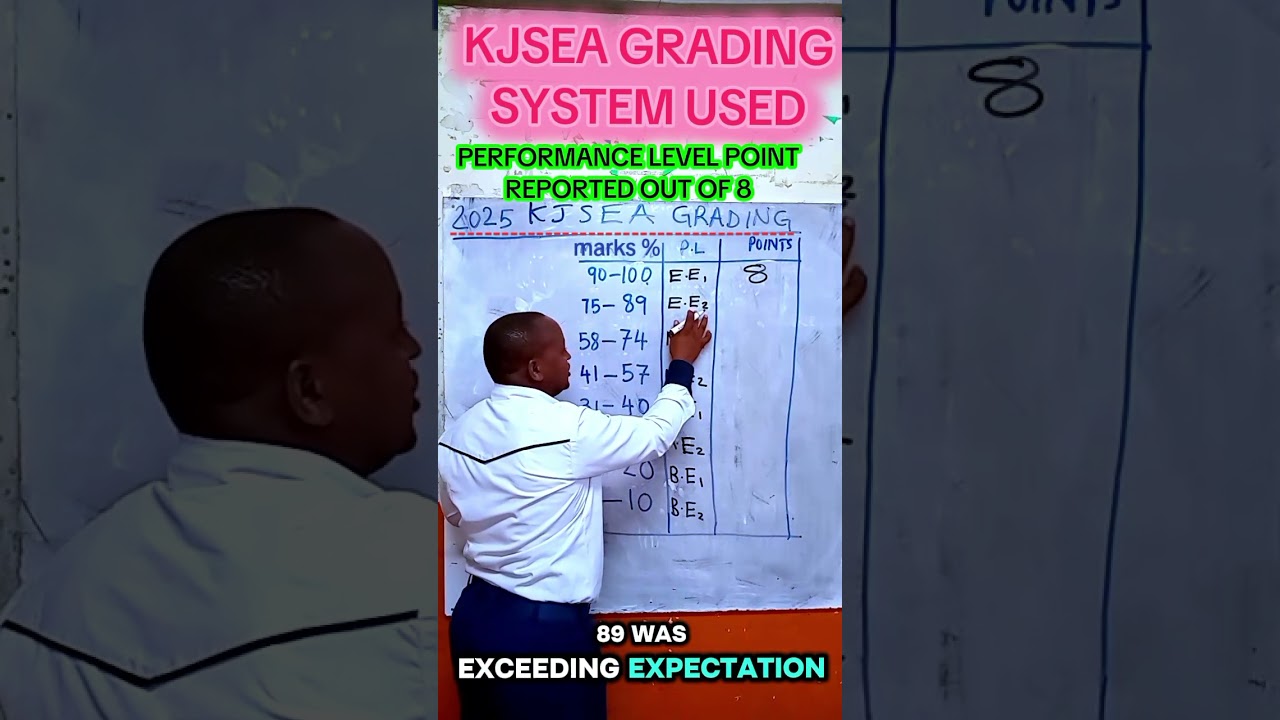 KJSEA GRADING
SYSTEM USED
PERFORMANCE LEVEL POINT
REPORTED OUT OF 8
2025 KJSEA GRADING
marks % P.L POINTS
90-100 E.E1 8
75-89 E.E2
58-74
41-57 2
31-40 1
.E2
20 B.E1
-10 B.E2
89 WAS
EXCEEDING EXPECTATION
POINTS
8